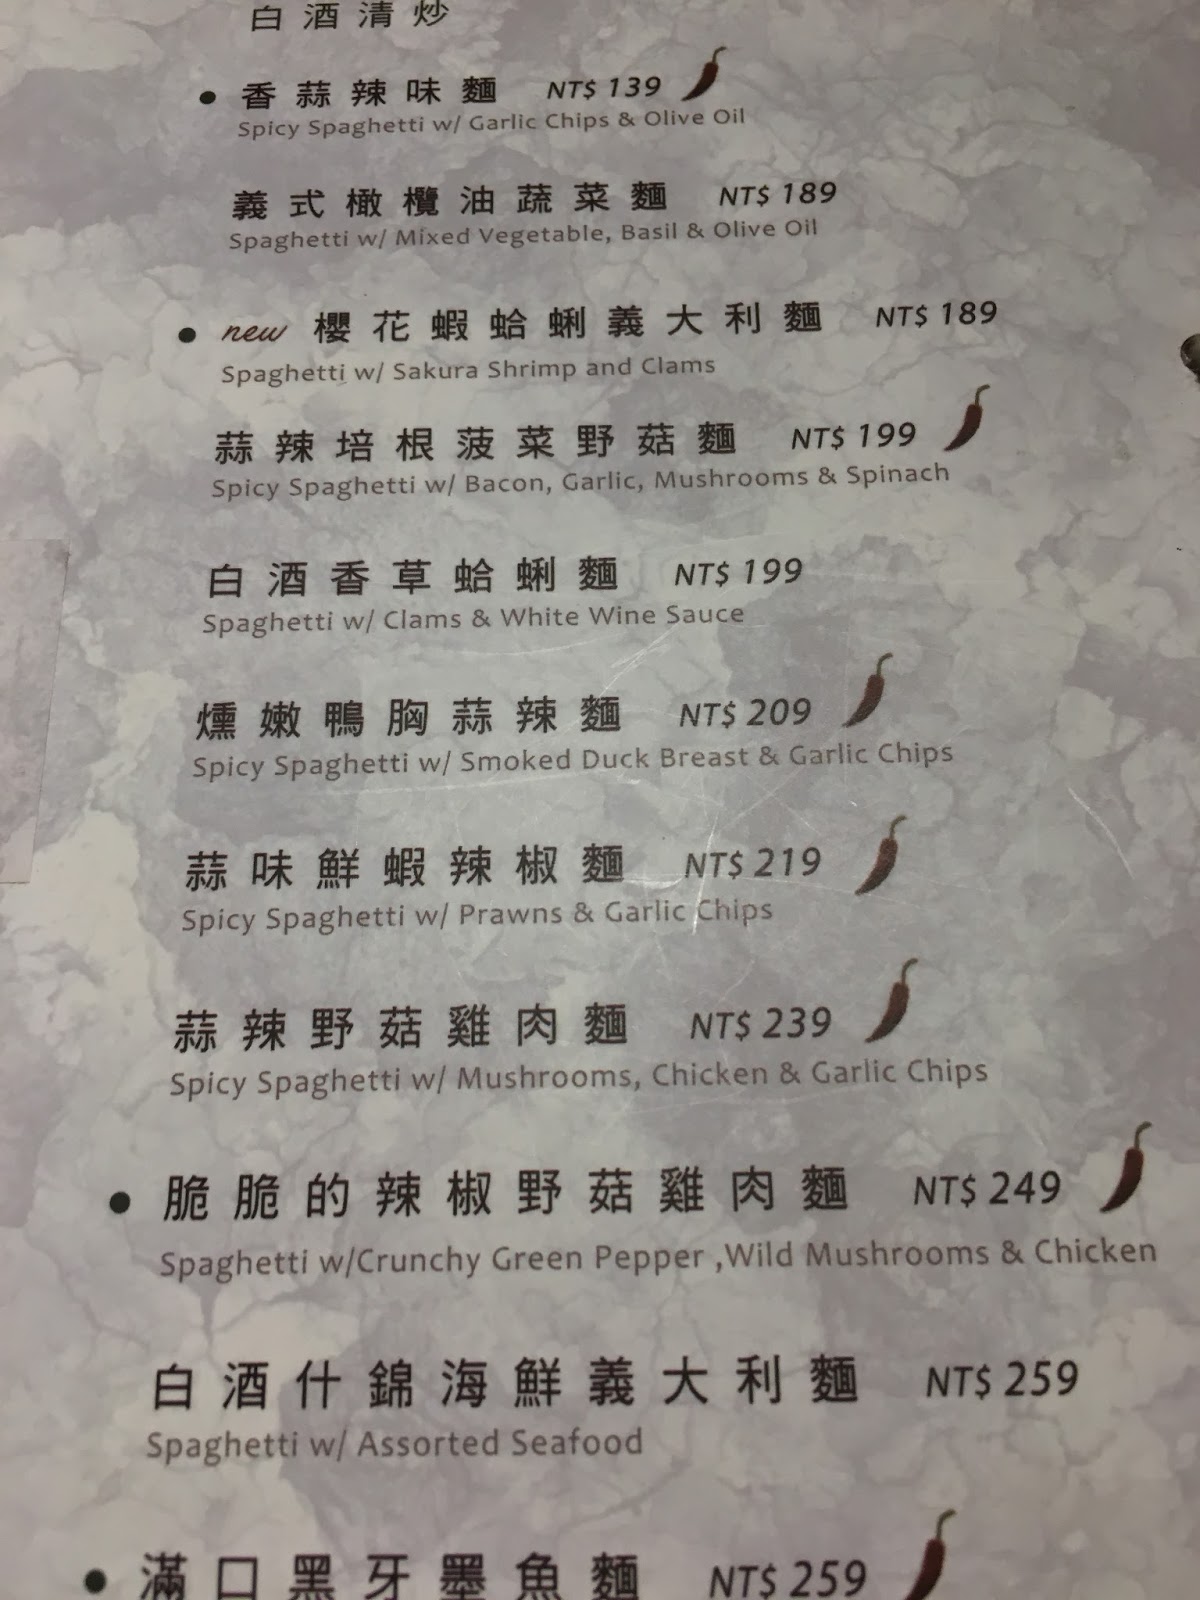 白酒清炒
• 香蒜辣味麵 NT$ 139
Spicy Spaghetti w/ Garlic Chips & Olive Oil
義式橄欖油蔬菜麵 NT$ 189
Spaghetti w/ Mixed Vegetable, Basil & Olive Oil
• new 櫻花蝦蛤蜊義大利麵 NT$ 189
Spaghetti w/ Sakura Shrimp and Clams
蒜辣培根菠菜野菇麵 NT$ 199
Spicy Spaghetti w/ Bacon, Garlic, Mushrooms & Spinach
白酒香草蛤蜊麵 NT$ 199
Spaghetti w/ Clams & White Wine Sauce
燻嫩鴨胸蒜辣麵 NT$ 209
Spicy Spaghetti w/ Smoked Duck Breast & Garlic Chips
蒜味鮮蝦辣椒麵 NT$ 219
Spicy Spaghetti w/ Prawns & Garlic Chips
蒜辣野菇雞肉麵 NT$ 239
Spicy Spaghetti w/ Mushrooms, Chicken & Garlic Chips
• 脆脆的辣椒野菇雞肉麵 NT$ 249
Spaghetti w/Crunchy Green Pepper ,Wild Mushrooms & Chicken
白酒什錦海鮮義大利麵 NT$ 259
Spaghetti w/ Assorted Seafood
• 滿口黑牙墨魚麵 NT$ 259